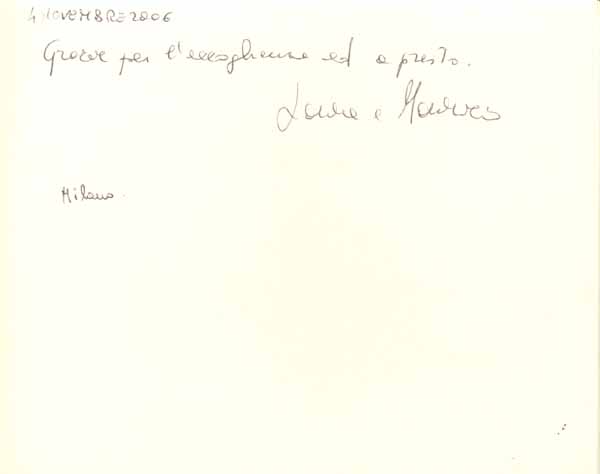 4 NOVEMBRE 2006
Grazie per l'accoglienza ed a presto.
Laura e
Milano